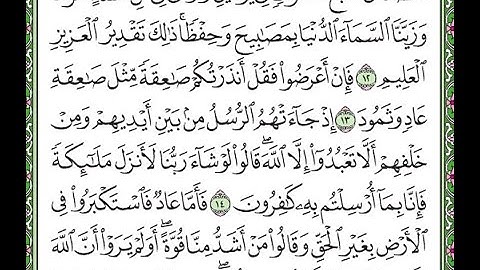 وَزَيَّنَّا ٱلسَّمَآءَ ٱلدُّنْيَا بِمَصَٰبِيحَ وَحِفْظًا ۚ ذَٰلِكَ تَقْدِيرُ ٱلْعَزِيزِ
ٱلْعَلِيمِ ١٢ فَإِنْ أَعْرَضُوا۟ فَقُلْ أَنذَرْتُكُمْ صَٰعِقَةً مِّثْلَ صَٰعِقَةِ
عَادٍ وَثَمُودَ ١٣ إِذْ جَآءَتْهُمُ ٱلرُّسُلُ مِنۢ بَيْنِ أَيْدِيهِمْ وَمِنْ
خَلْفِهِمْ أَلَّا تَعْبُدُوٓا۟ إِلَّا ٱللَّهَ ۖ قَالُوا۟ لَوْ شَآءَ رَبُّنَا لَأَنزَلَ مَلَٰٓئِكَةً
فَإِنَّا بِمَآ أُرْسِلْتُم بِهِۦ كَٰفِرُونَ ١٤ فَأَمَّا عَادٌ فَٱسْتَكْبَرُوا۟ فِى
ٱلْأَرْضِ بِغَيْرِ ٱلْحَقِّ وَقَالُوا۟ مَنْ أَشَدُّ مِنَّا قُوَّةً ۖ أَوَلَمْ يَرَوْا۟ أَنَّ ٱللَّهَ